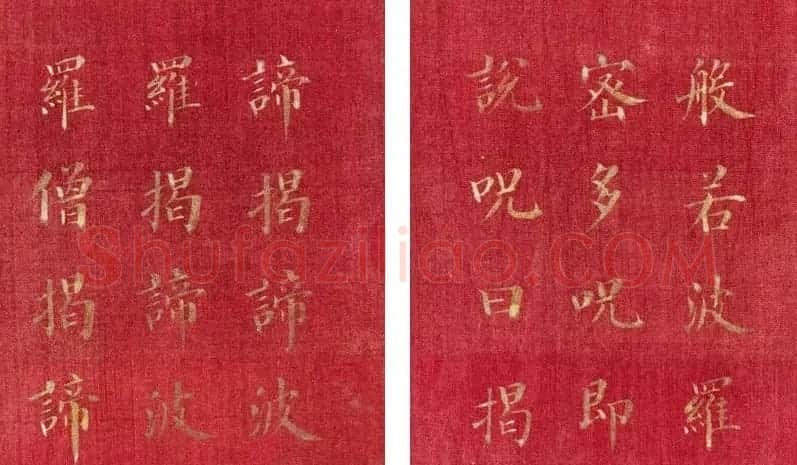 般若波羅
密多呪即
說呪曰揭
諦揭諦波
羅揭諦波
羅僧揭諦
Shufaziliao.COM